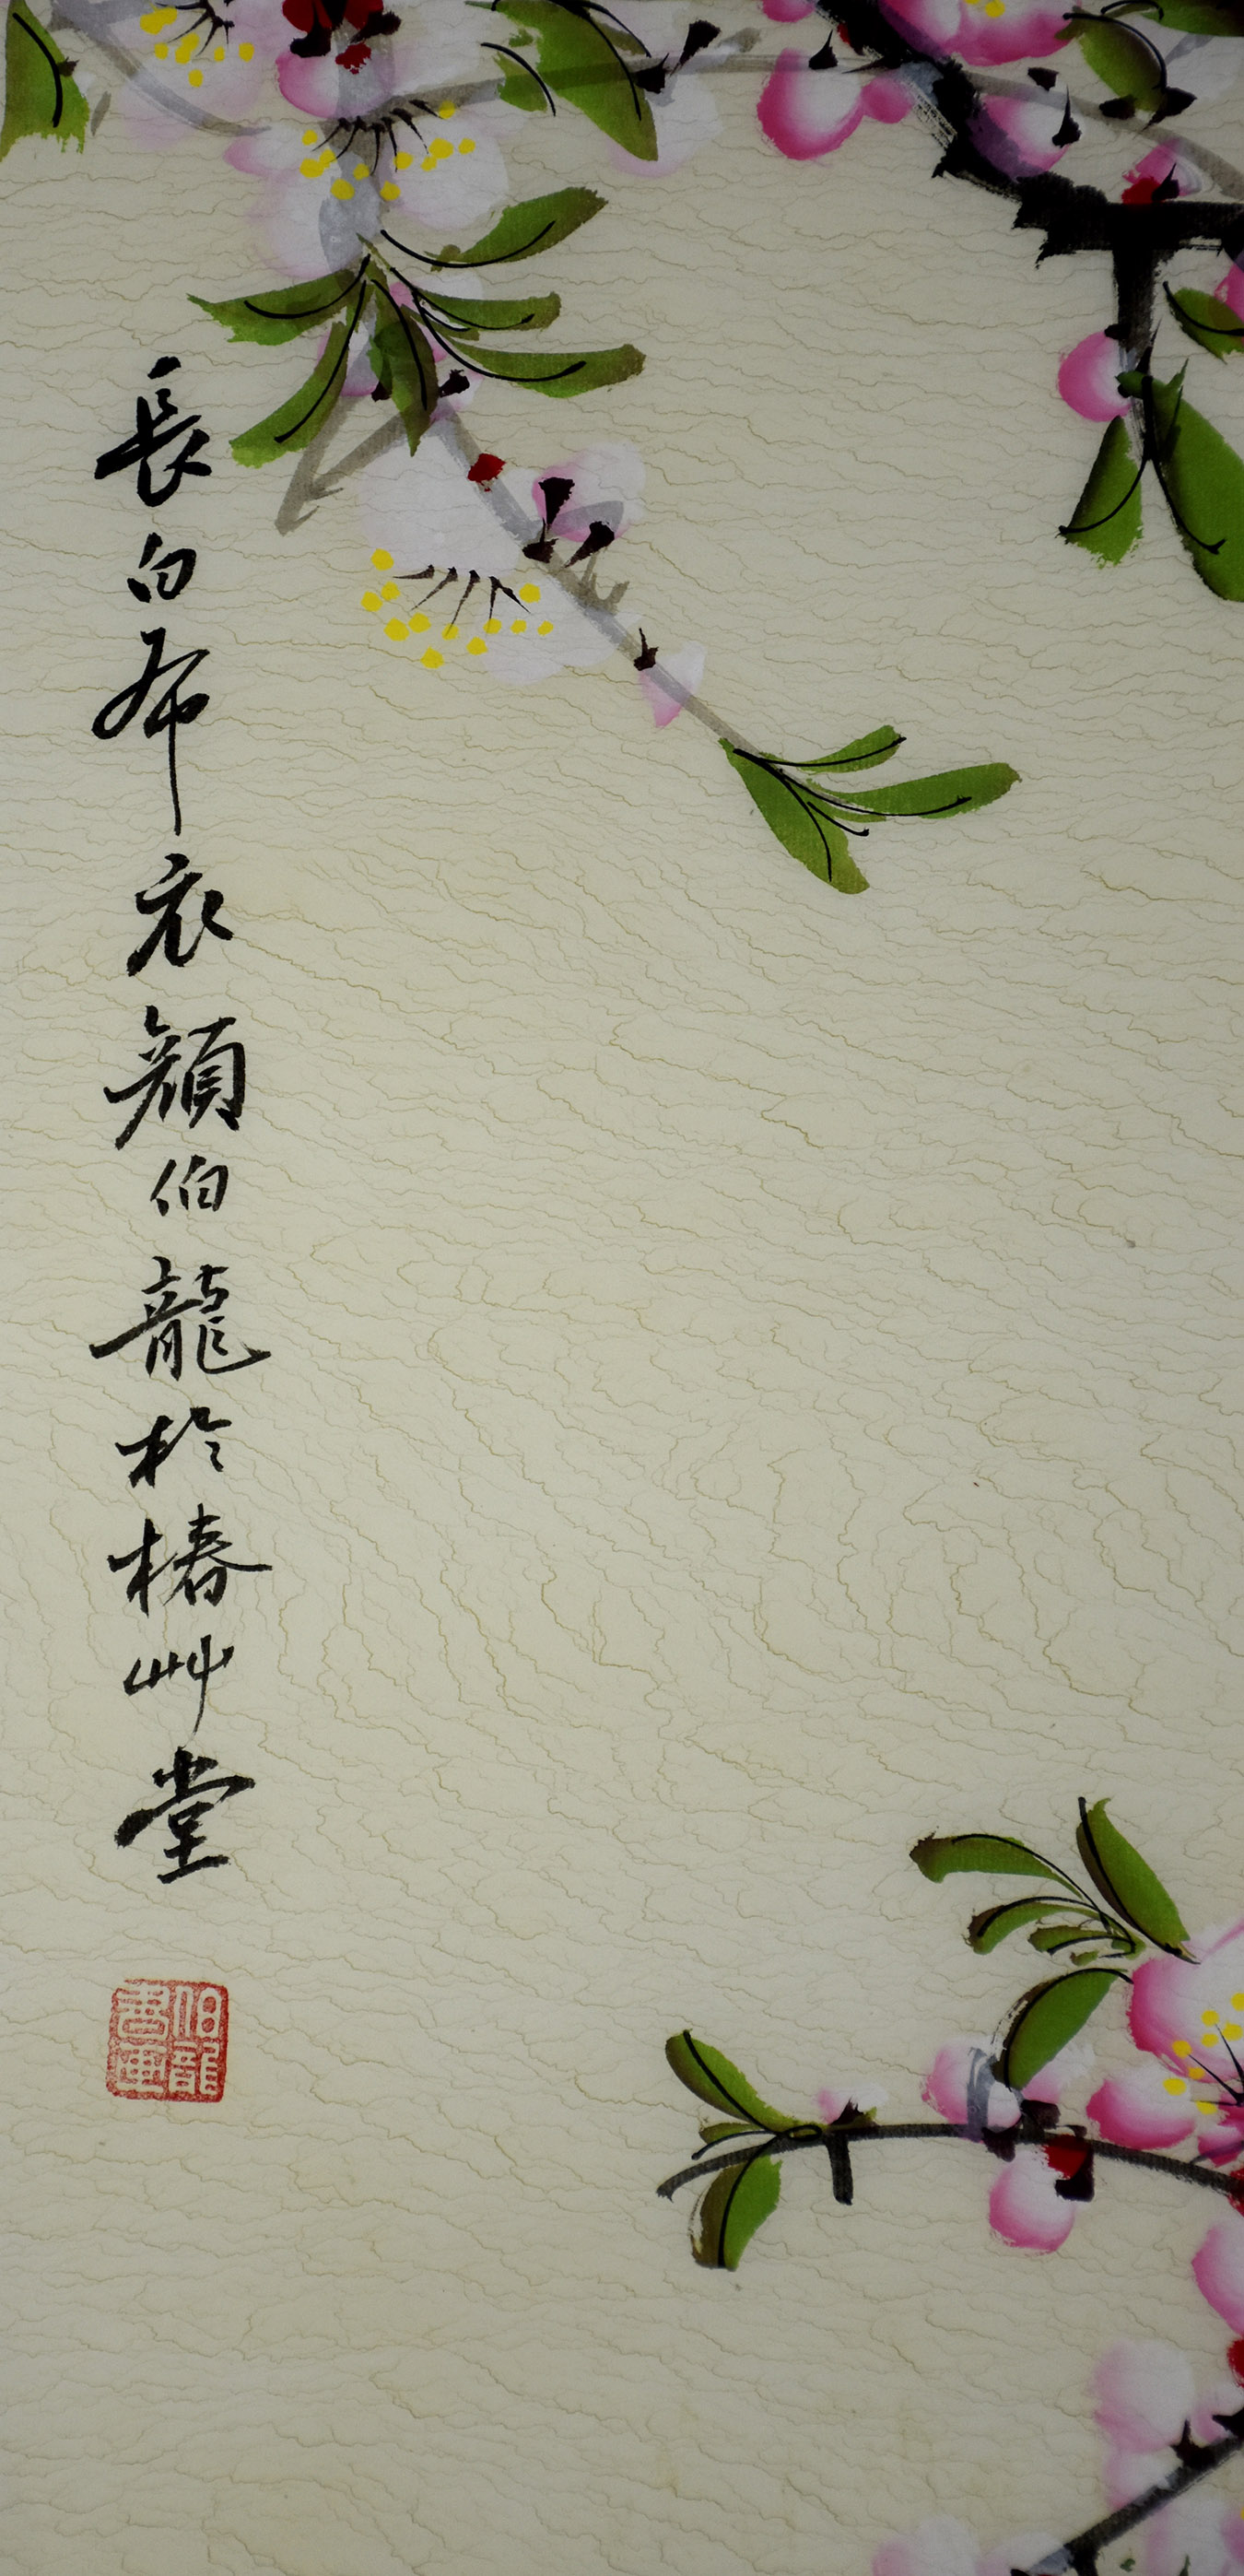 長白布衣顏伯龍於椿艸堂
伯龍書畫